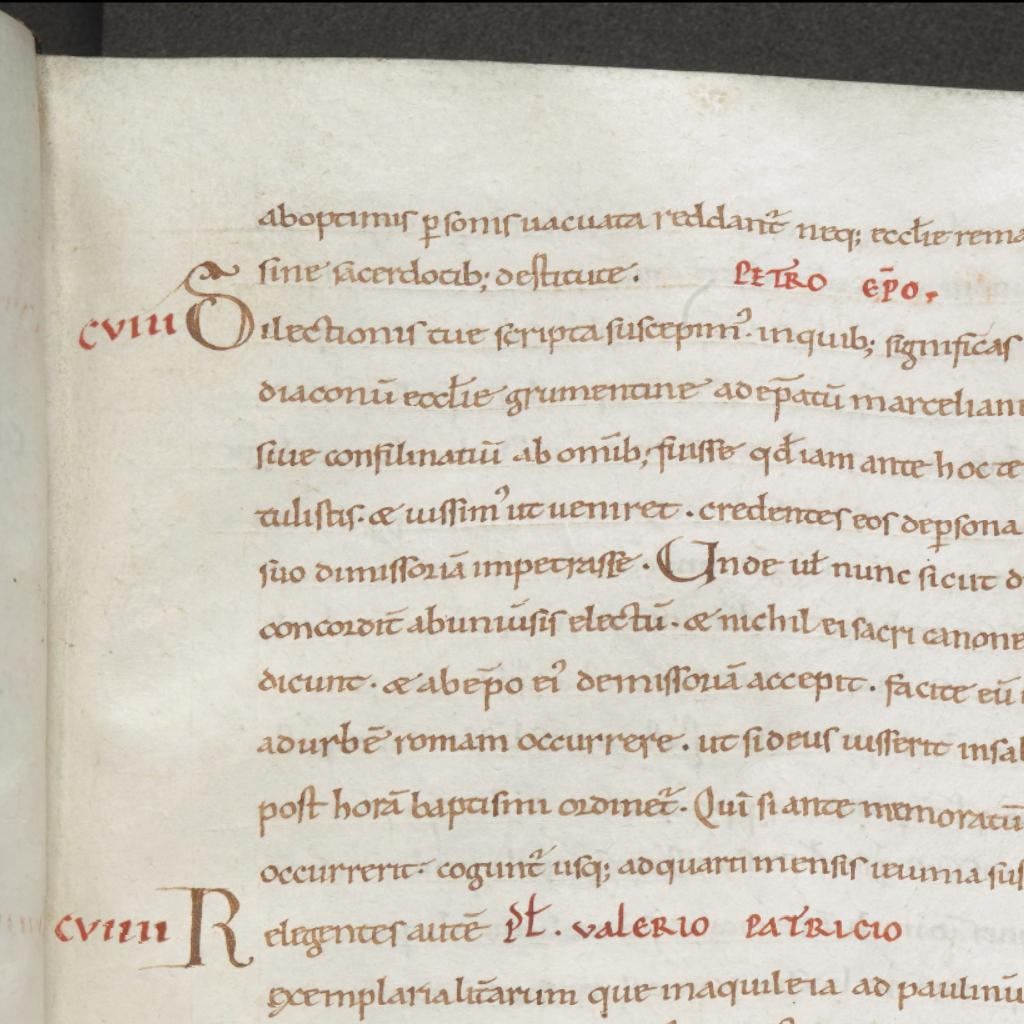 aboptimis p̱sonis uacuata reddant᷑ neq; eccl̅ie rema
sine sacerdotib; destitute. PETRO EP̅O.
CVIII Dilectionis tue scripta suscepim᾿. inquib; significas
diaconū eccl̅ie grumentine adep̅atū marcelliani
siue consilinatiū ab omīb; fuisse qd̅ iam ante hoc te
tulistis. & iussim᾿ ut ueniret. credentes eos dep̱sona
suo dimissoriā impetrasse. Unde ul̅ nunc sicut d
concordit̅ abuniūsis electū. & nichil ei sacri canone
dicunt. & abep̅o ei᾿ demissoriā accepit. facite eū
adurbē romam occurrere. ut sideus iusserit insab
post horā baptismi ordinet᷑. Qui si ante memoratū
occurrerit. cogunt᷑ usq; adquarti mensis ieiunia sus
CVIIII Relegentes autē PL̅. VALERIO PATRICIO
exemplaria lit̅arum que inaquileia ad paulinū